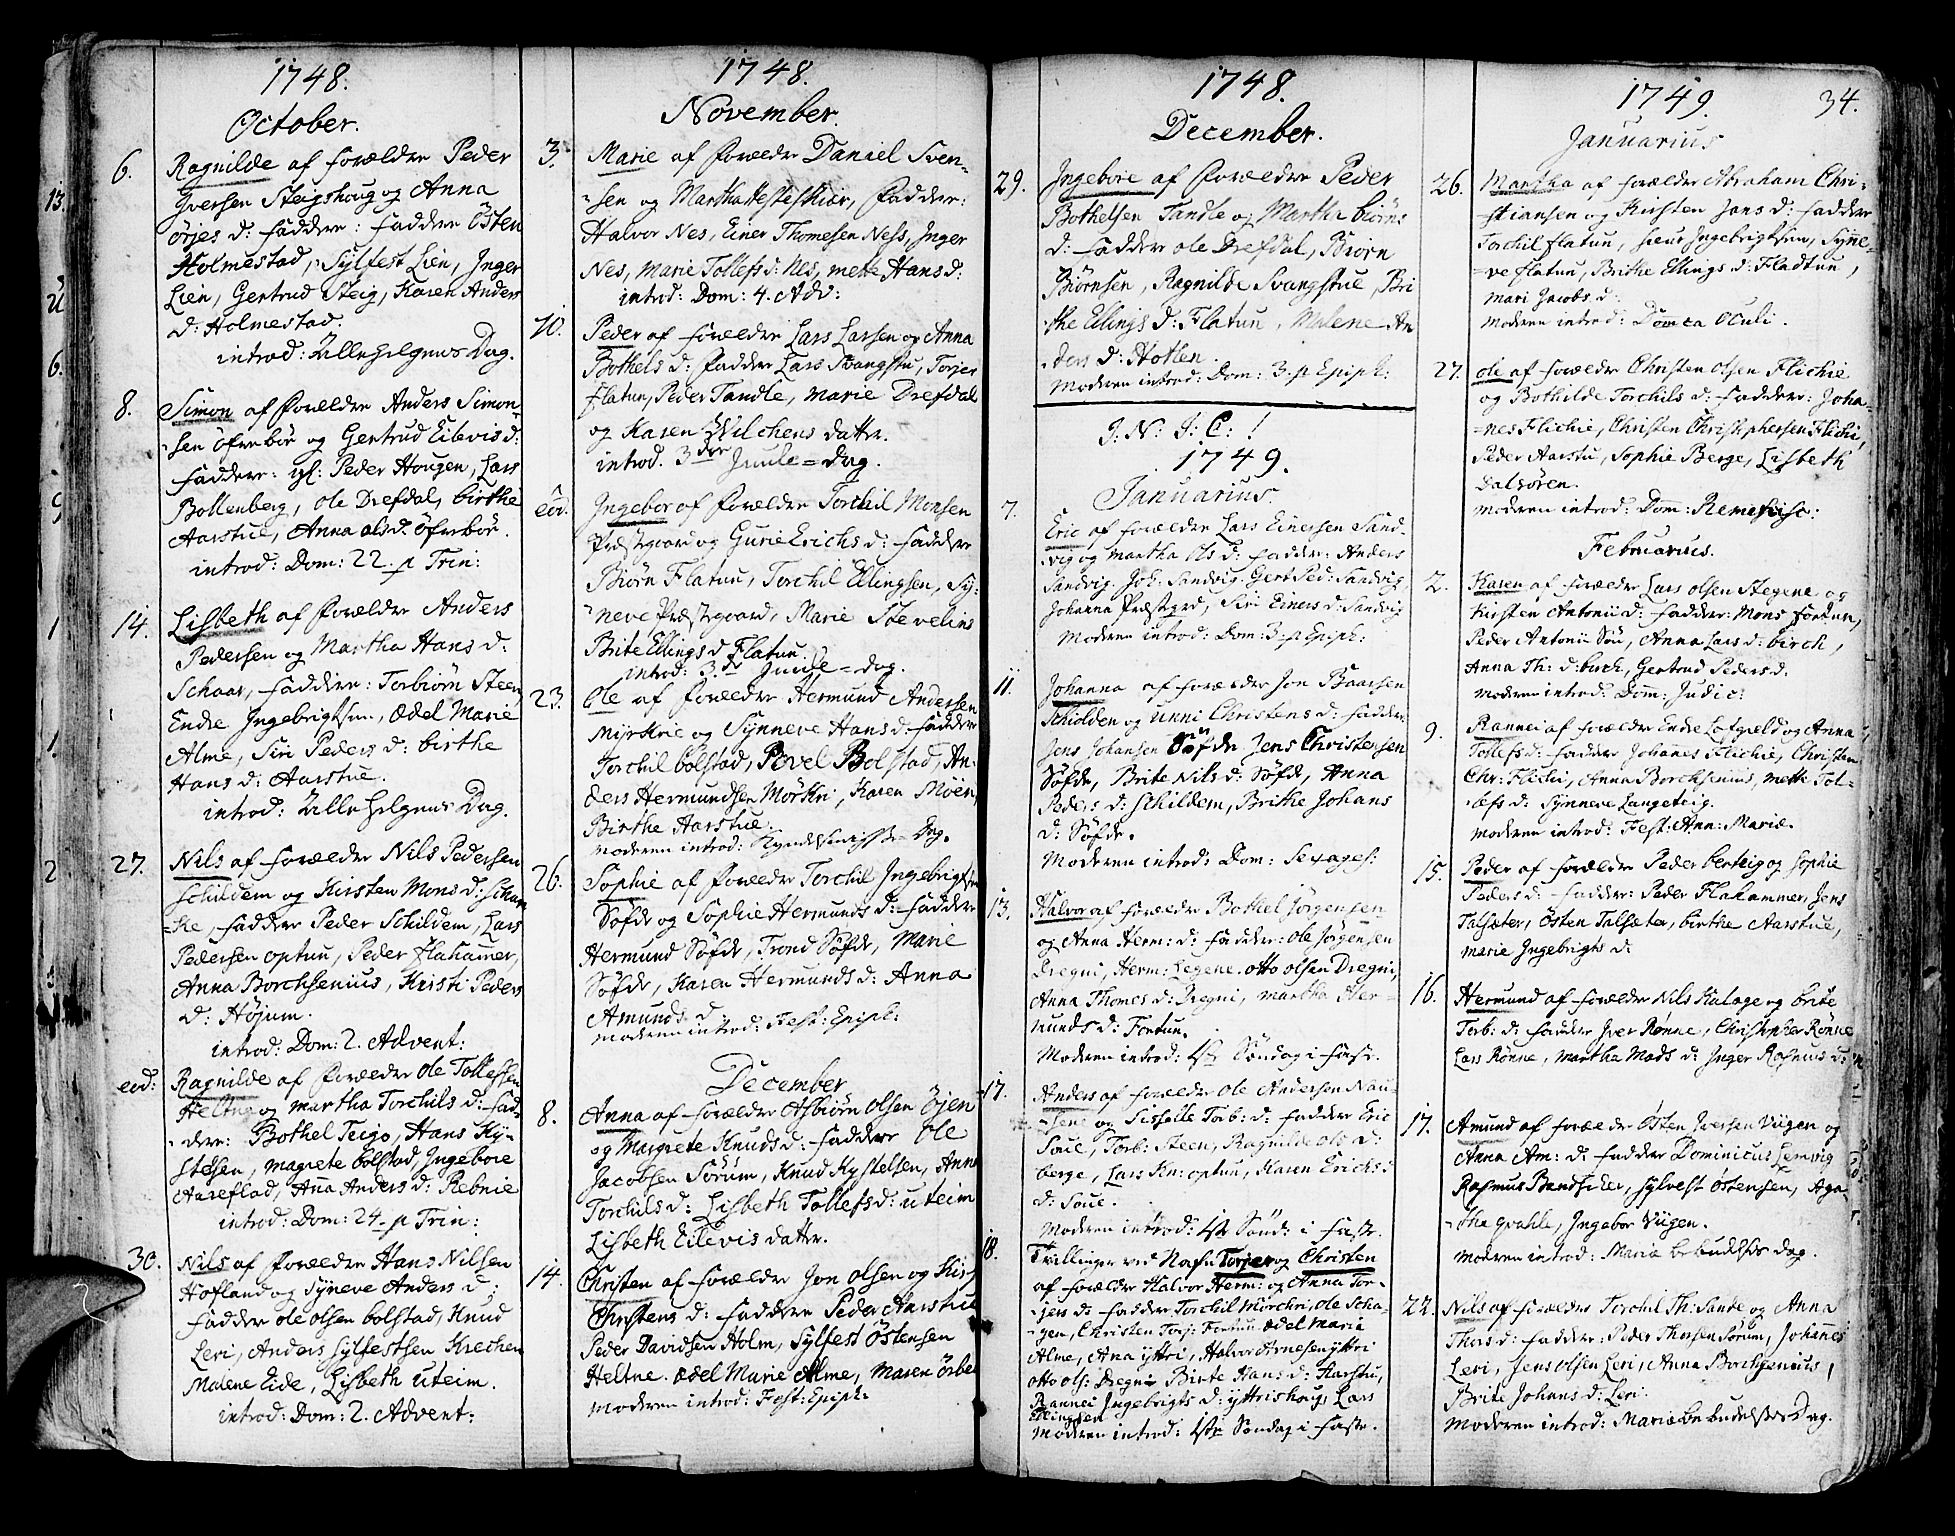 1748.
October.
6. Ragnilde af forældre Peder
Iversen Steigshoug og Anna
Örjes d: faddere: faddere Östen
Holmestad, Sylfest Lien, Inger
Lien, Gertrud Steig, Karen Anders
d: Holmestad.
introd: Alle Helgens Dag.
8. Simon af forældre Anders Simon-
sen öfrebör og Gertrud Eilevis d:
faddere: gl: Peder Hougen, Lars
Bollenberg, Ole Drefdal, birthe
Aarstue, Anna Ols d. öfrebör.
introd: Dom: 22. p Trin:
14. Lisbeth af forældre Anders
Pedersen og Martha Hans d:
Schaar, faddere: Torbiörn Steen,
Endre Ingebrigtsen, Ædel Marie
Alme, Siri Peders d: birthe
Hans d: Aarstue.
introd: Alle Helgens Dag.
27. Nils af forældre Nils Pedersen
Schildem og Kirsten Mons d: Schan-
-ke, faddere Peder Schildem, Lars
Pedersen optun, Peder flahamer,
Anna Borchsenius, Kristi Peders
d: Höjum.
introd: Dom: 2. Advent:
eod: Ragnilde af forældre Ole Tollefsen
Heltng og martha Torchils d: fad-
dere: Bothel Teigo, Hans Ky-
stelsen, magrete bolstad, Ingebore
Aareflad, Aña Anders d: Rebnie
introd: Dom: 24. p Trin:
30. Nils af forældre Hans Nilsen
Hofland og Syneve Anders d:
faddere ole olsen bolstad, Knud
Leri, Anders Sylfestsen Krechen
Malene Eide, Lisbeth uteim.
introd: Dom: 2. Advent:
1748.
November.
3. Marie af forældre Daniel Sven-
-sen og Martha Hesteskiær, faddere:
Halvor Nes, Einer Thomesen Ness, Inger
Nes, Marie Tollefs d: Nes, mette Hans d:
introd: Dom: 4. Adv:
10. Peder af forældre Lars Larsen og Anna
Bothels d: faddere Lars Svangstu, Torjer
flatun, Peder Tandle, marie Drefdal
og Karen Wilchens datter.
introd. 3die Juule-dag.
eod. Ingebor af forældre Torchil Monsen
Præstgaard og Gurie Erichs d: faddere
Biörn Flatun, Torchil Ellingsen, Sy-
-neve Præstegaard, Marie Stevelins
Brite Ellings d Flatun.
introd: 3.de Juule-dag.
23. Ole af forældre Hermund Andersen
Myrkrie og Synneve Hans d: faddere
Torchil bolstad, Povel Bolstad, An-
ders Hermundsen Mörkri, Karen Möen,
Birthe Aarstue.
moderen introd: Kyndelsmisse-Dag.
26. Sophie af forældre Torchil Ingebrigtsen
Söfde og Sophie Hermunds d: faddere
Hermund Söfde, Trond Söfde, Marie
Söfde, Karen Hermunds d: Anna
Amunds d:
moderen introd: Fest: Epiph:
December
8. Anna af forældre Asbiörn olsen Öjen
og Margrete Knuds d: faddere ole
Jacobsen Sörüm, Knud Kystelsen, Anna
Torchils d: Lisbeth Tollefs d: uteim
Lisbeth Eilevis datter.
14. Christen af forældre Jon olsen og
Christens d: faddere Peder Aarstue
Peder Davidsen Holm, Sylfest Östensen
Heltne. Ædel Marie Alme, Maren örbe
moderen introd: Fest: Epiph:
1748.
December.
29. Ingebore af forældre Peder
Bothelsen Tandle og Martha biörns
d: faddere ole Drefdal, Biörn
Biörnsen, Ragnilde Svangstue, Bri-
-the Ellings d: Flatun, Malene An
ders d: Hotlen.
Moderen introd: Dom: 3. p Epiph:
J: N: J: C: !
1749.
Januarius.
7. Eric af forældre Lars Einersen Sand-
vig og martha Ols d: faddere: Anders
Sandvig. Joh: Sandvig, Gert Ped: Sandvig,
Johanna Præstgrd, Siri Einers d: Sandvig
Moderen introd: Dom: 3. p Epiph:
11. Johanna af forældre Jon Baarsen
Schiolden og unni Christens d: faddere:
Jens Johansen Söfde Jens Christensen
Söfde, Brite Nils d: Söfde, Anna
Peders d: Schildem, Brithe Johans
d: Söfde.
Moderen introd: Dom: Sexages:
13. Halvor af forældre Bothel Jörgensen
og Anna Herm: d: faddere: Ole Jörgensen
Dregni, Herm: Legene. otto olsen Dregni,
Anna Thomes d: Dregni, martha Her-
munds d: Fortun.
Moderen introd: 1ste Söndag i faste.
17. Anders af forældre Ole Andersen Nau-
-sene og Sisselle Torb: d: faddere Eric
Soue, Torb: Steen, Ragnilde ole d:
berge, Lars Kn: optun, Karen Erichs
d: Soue.
Moderen introd: 1ste Sönd: i faste.
18. Tvillinger ved Nafn Torjer og Christen
af forældre Halvor Herm: og Anna Tor-
-jers d: faddere Torchil Mörchri, ole Scha-
-gen, Christen Torj: Fortun. Ædel Maria
Alme, Ana yttri, Halvor Arnesen yttri
otto ols: Dregni Birte Hans d: Aarstu,
Rannei Ingebrigts d: yttrishoug, Lars
Ellingsen
Moderen introd: 1ste Söndag i faste.
1749. 34.
Januarius
26. Martha af forældre Abraham Chri-
stiansen og Kirsten Jons d: faddere
Torchil flatun, Ingebrigtsen, Syne-
-ve flatun, Brithe Ellings d: Fladtun,
mari Jacobs d:
Moderen introd: Domca Oculi.
27. ole af forældre Christen olsen Flichie
og Bothilde Torchils d: faddere: Joha-
-nes Flichie, Christen Christophersen Flichi,
Peder Aarstu, Sophie Berge, Lisbeth
Dalsören.
Moderen introd: Dom: Reminisc:
Februarius.
2. Karen af forældre Lars olsen Stegene og
Kirsten Antonii d: faddere: Mons fortun,
Peder Antonii Sön, Anna Lars d: birch,
Anna Th: d: birch, Gertrud Peders d.
moderen introd: Dom: Judic:
9. Rannei af forældre Ende Lofgield og Anna
Tollefs d: faddere Johanes Flichie, Christen
Chr: Flichi, Anna Borchsenius, mette Tol-
-lefs d: Synneve Langeteig.
moderen introd: Fest: Ann: Mariæ.
15. Peder af forældre Peder berteig og Sophie
Peders d: faddere: Peder Flahammer, Jens
Talsæter, Östen Talsæter, birthe Aarstue,
marie Ingebrigts d:
16. Hermund af forældre Nils Kulage og brite
Torb: d: faddere Iver Rönne, Christopher Rönne
Lars Rönne, martha Mads d: Inger Rasmus d:
17. Amund af forældre Östen Iversen Viigen og
Anna Am: d: faddere Dominicus Lemvig
Rasmus, Sylvest Östensen, Aga-
-the qvahle, Ingebor Viigen.
Moderen introd: Mariæ bebudelses dag.
22. Nils af forældre Torchil Th: Sande og Anna
Thors d: faddere: Peder Thorsen Sörum, Johannes
Leri, Jens olsen Leri, Anna Borchsenius,
Brite Johans d: Leri.
moderen introd: Mariæ bebudelses Dag.